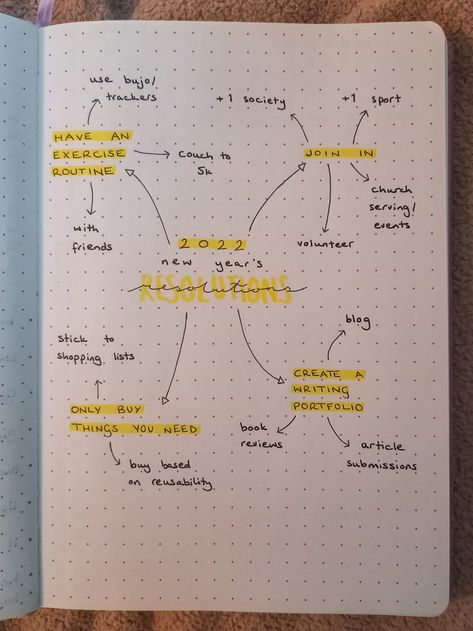 use bujo/
trackers
HAVE AN
EXERCISE
ROUTINE
couch to
5k
with
friends
+1 society
+1 sport
JOIN IN
church
serving/
events
volunteer
2022
new year's
RESOLUTIONS
resolutions
stick to
shopping lists
ONLY BUY
THINGS YOU NEED
buy based
on reusability
blog
CREATE A
WRITING
PORTFOLIO
book
reviews
article
submissions